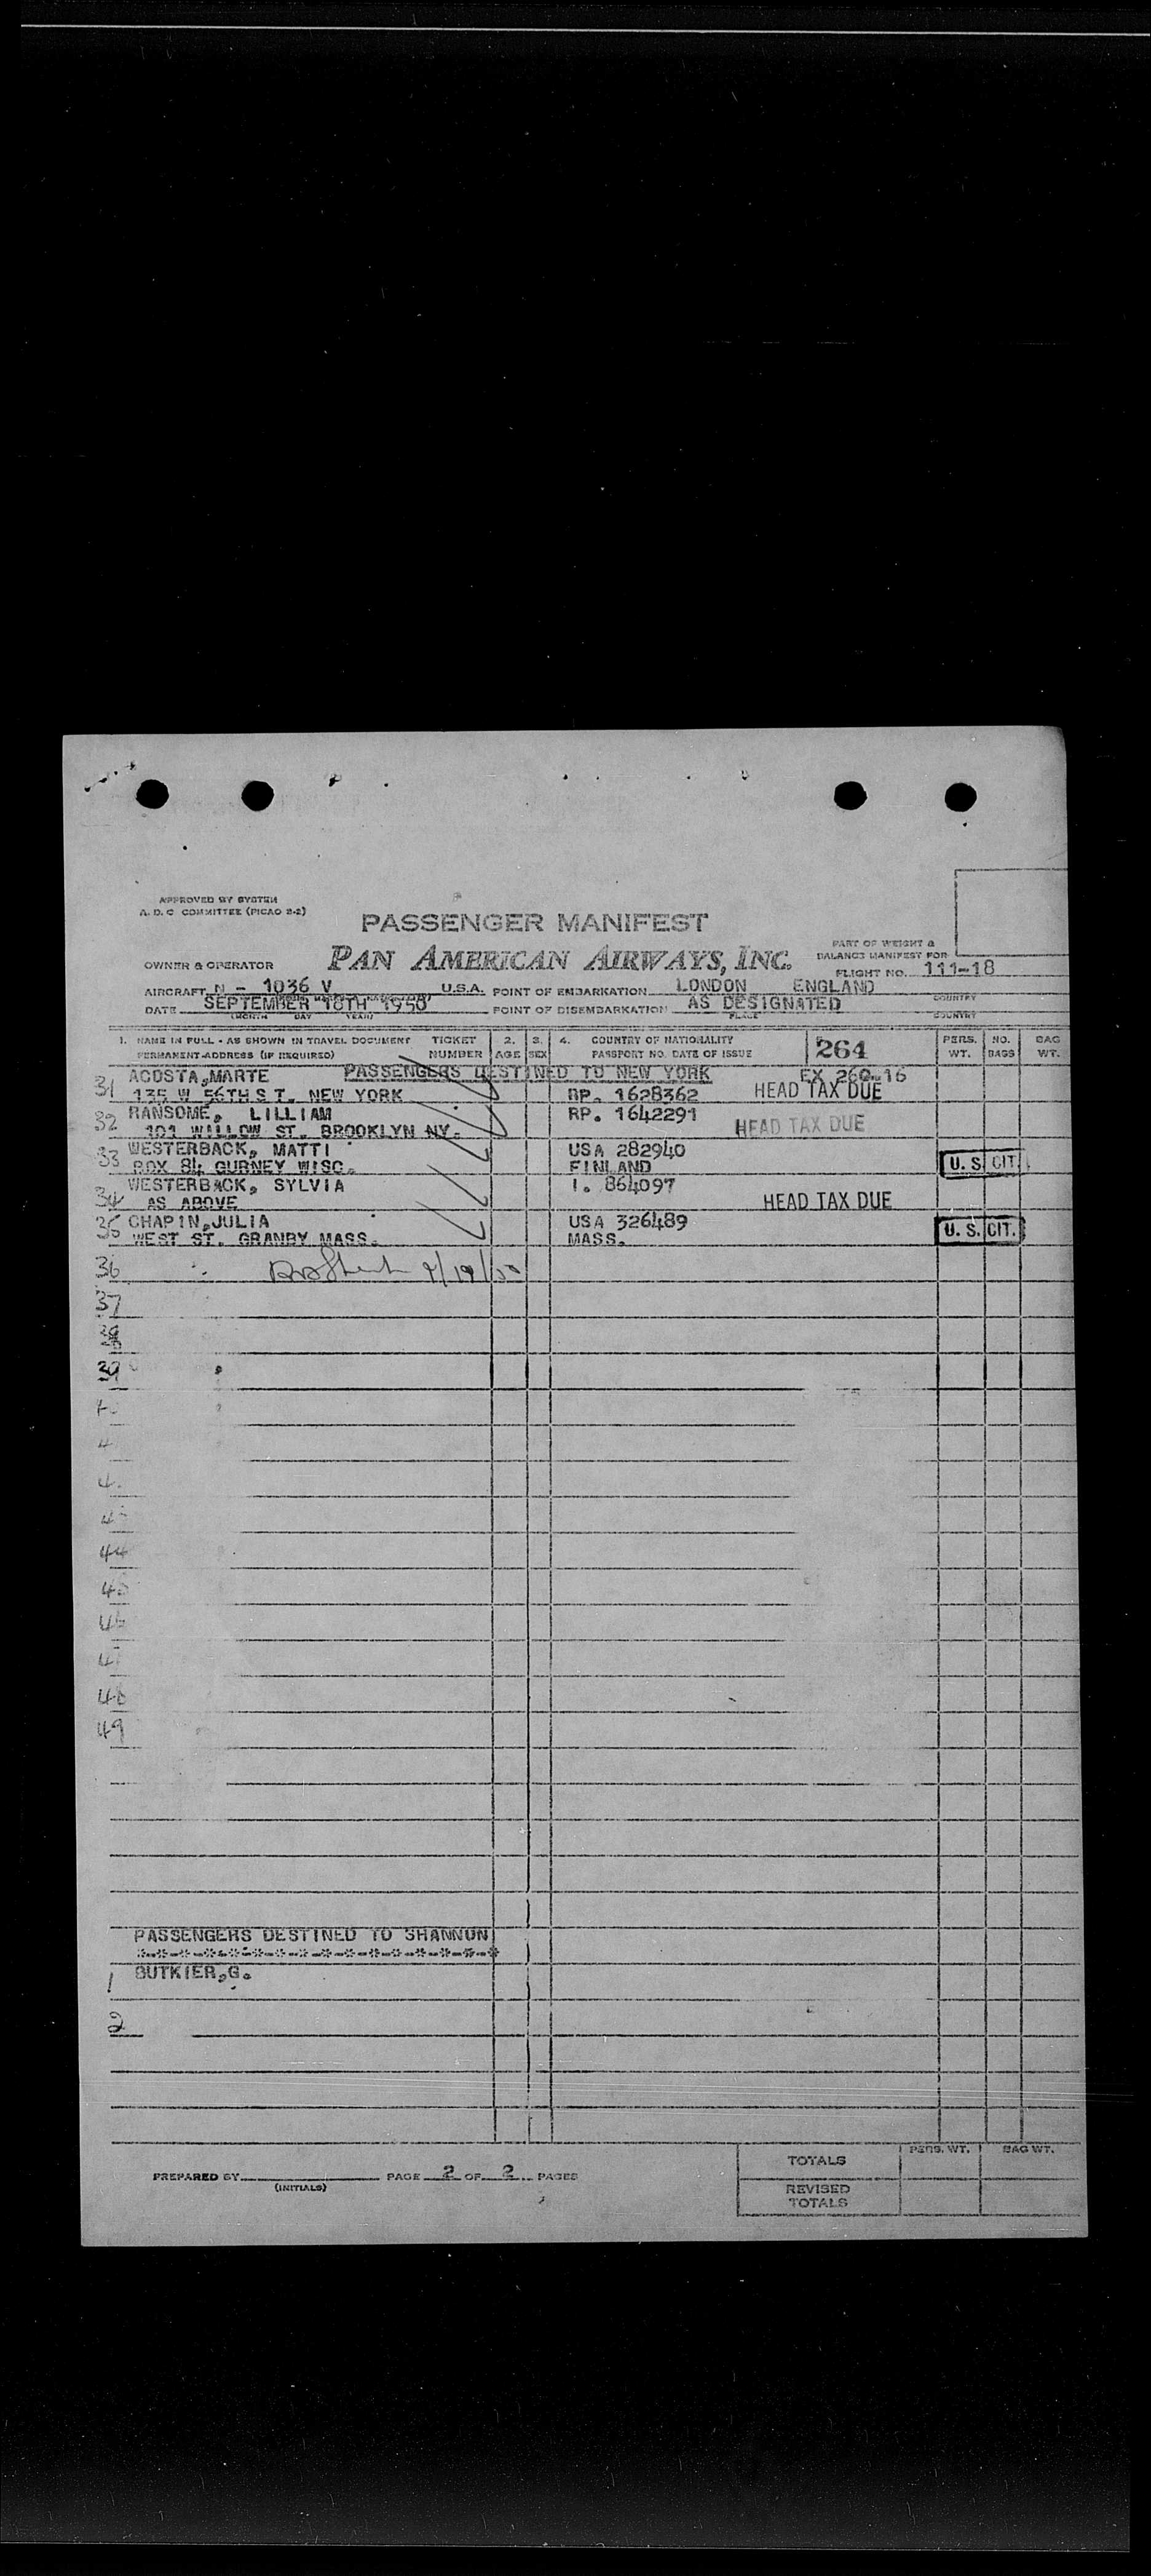 APPROVED BY SYSTEM
A. D. C COMMITTEE (PICAO 2-2)
PASSENGER MANIFEST
PAN AMERICAN AIRWAYS, INC.
PART OF WEIGHT &
BALANCE MANIFEST FOR
OWNER & OPERATOR
FLIGHT NO. 111-18
AIRCRAFT N - 1036 V U.S.A. POINT OF EMBARKATION LONDON ENGLAND
COUNTRY
DATE SEPTEMBER 18TH 1950 POINT OF DISEMBARKATION AS DESIGNATED
(MONTH DAY YEAR) PLACE COUNTRY
1. NAME IN FULL - AS SHOWN IN TRAVEL DOCUMENT TICKET 2. 3. 4. COUNTRY OF NATIONALITY 264 PERS. NO. BAG
PERMANENT ADDRESS (IF REQUIRED) NUMBER AGE SEX PASSPORT NO. DATE OF ISSUE WT. BAGS WT.
PASSENGERS DESTINED TO NEW YORK
31 ACOSTA,MARTE EX 260-16
135 W 56TH S T. NEW YORK RP. 1628362 HEAD TAX DUE
32 RANSOME, LILLIAM RP. 1642291
101 WILLOW ST. BROOKLYN NY. HEAD TAX DUE
33 WESTERBACK, MATTI USA 282940
BOX 84 GURNEY WISC. FINLAND U. S. CIT.
34 WESTERBACK, SYLVIA I. 864097
AS ABOVE HEAD TAX DUE
35 CHAPIN,JULIA USA 326489
WEST ST. GRANBY MASS. MASS. U. S. CIT.
36 9/19/50
37
38
39
44
46
48
49
PASSENGERS DESTINED TO SHANNON
*-*-*-*-*-*-*-*-*-*-*-*-*-*-*-*
1 BUTKIER,G.
2
PREPARED BY PAGE 2 OF 2 PAGES
(INITIALS)
PERS. WT. BAG WT.
TOTALS
REVISED
TOTALS